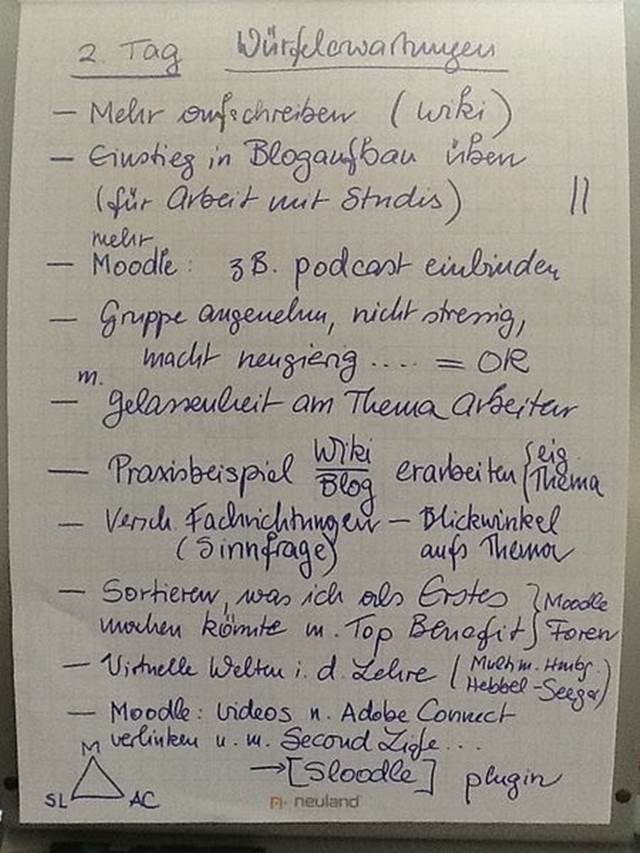 2. Tag Würfelerwartungen
— Mehr aufschreiben (Wiki)
— Einstieg in Blogaufbau üben
(für Arbeit mit Studis) ||
mehr
— Moodle: z.B. podcast einbinden
— Gruppe angenehm, nicht stressig,
macht neugierig .... = OK
m.
— Gelassenheit am Thema arbeiten
— Praxisbeispiel Wiki/Blog erarbeiten { eig. Thema
— Versch. Fachrichtungen – Blickwinkel
(Sinnfrage) aufs Thema
— Sortieren, was ich als Erstes } Moodle
machen könnte m. Top Benefit } Foren
— Virtuelle Welten i. d. Lehre (Multim. Hmbg.
Hebbel-Seeger)
— Moodle: Videos n. Adobe Connect
verlinken u. m. Second Life ...
M
→ [Sloodle] plugin
SL AC
neuland